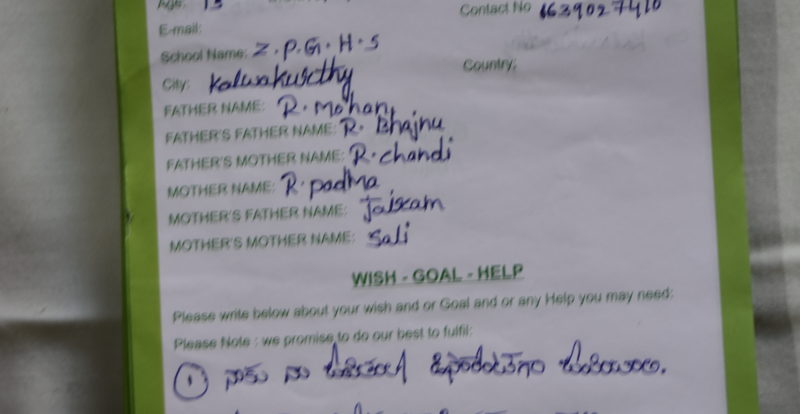 Age: 13
Contact No 6639027410
E-mail:
School Name: Z.P.G.H.S
City: Kalwakurthy Country:
FATHER NAME: R. Mohan
FATHER'S FATHER NAME: R. Bhajnu
FATHER'S MOTHER NAME: R. chandi
MOTHER NAME: R. padma
MOTHER'S FATHER NAME: Jairam
MOTHER'S MOTHER NAME: Sali
WISH - GOAL - HELP
Please write below about your wish and or Goal and or any Help you may need:
Please Note : we promise to do our best to fulfil:
① నాకు నా